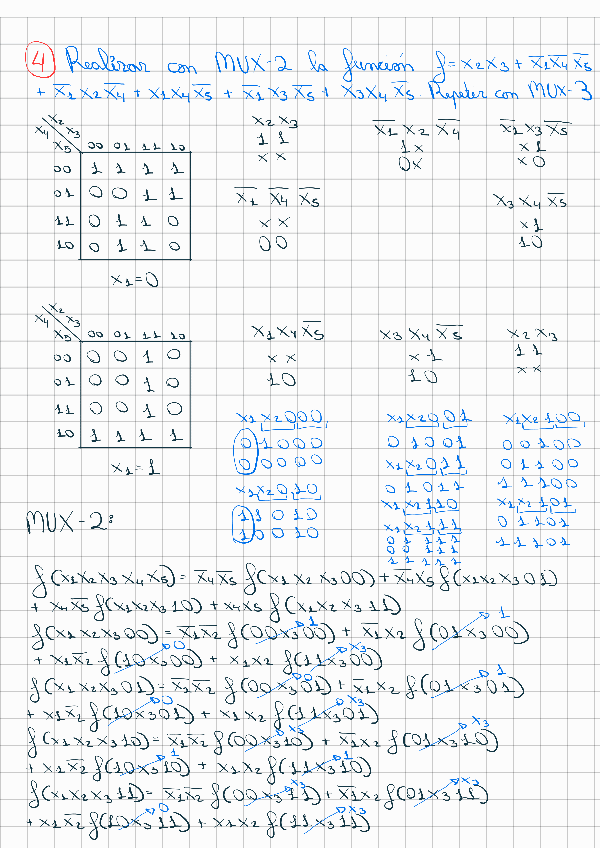 4 Realizar con MUX-2 la función f = x2x3 + x̅1x̅4x̅5
+ x̅1x2x̅4 + x1x4x̅5 + x̅1x3x̅5 + x3x4x̅5. Repetir con MUX-3
x2
x4 x3
x5 00 01 11 10
00 1 1 1 1
01 0 0 1 1
11 0 1 1 0
10 0 1 1 0
x1=0
x2 x3
1 1
x x
x̅1 x2 x̅4
1 x
0 x
x̅1 x3 x̅5
x 1
x 0
x̅1 x̅4 x̅5
x x
0 0
x3 x4 x̅5
x 1
1 0
x2
x4 x3
x5 00 01 11 10
00 0 0 1 0
01 0 0 1 0
11 0 0 1 0
10 1 1 1 1
x1=1
x1 x4 x̅5
x x
1 0
x3 x4 x̅5
x 1
1 0
x2 x3
1 1
x x
x1x2000,
0 1 0 0 0
0 0 0 0 0
x1x2010
1 1 0 1 0
1 0 0 1 0
x1x2001
0 1 0 0 1
x1x2011
0 1 0 1 1
x1x2110
x1x2111
0 1 1 1 1
0 0 1 1 1
1 1 1 1 1
x1x2100
0 0 1 0 0
0 1 1 0 0
1 1 1 0 0
x1x2101
0 1 1 0 1
1 1 1 0 1
MUX-2:
f(x1x2x3x4x5) = x̅4x̅5 f(x1x2x300) + x̅4x5 f(x1x2x301)
+ x4x̅5 f(x1x2x310) + x4x5 f(x1x2x311)
f(x1x2x300) = x̅1x̅2 f(00x300) 1 + x̅1x2 f(01x300) 1
+ x1x̅2 f(10x300) 0 + x1x2 f(11x300) x3
f(x1x2x301) = x̅1x̅2 f(00x301) 0 + x̅1x2 f(01x301) 1
+ x1x̅2 f(10x301) 0 + x1x2 f(11x301) x3
f(x1x2x310) = x̅1x̅2 f(00x310) x3 + x̅1x2 f(01x310) x3
+ x1x̅2 f(10x310) 1 + x1x2 f(11x310) 1
f(x1x2x311) = x̅1x̅2 f(00x311) x3 + x̅1x2 f(01x311) x3
+ x1x̅2 f(10x311) 0 + x1x2 f(11x311) x3